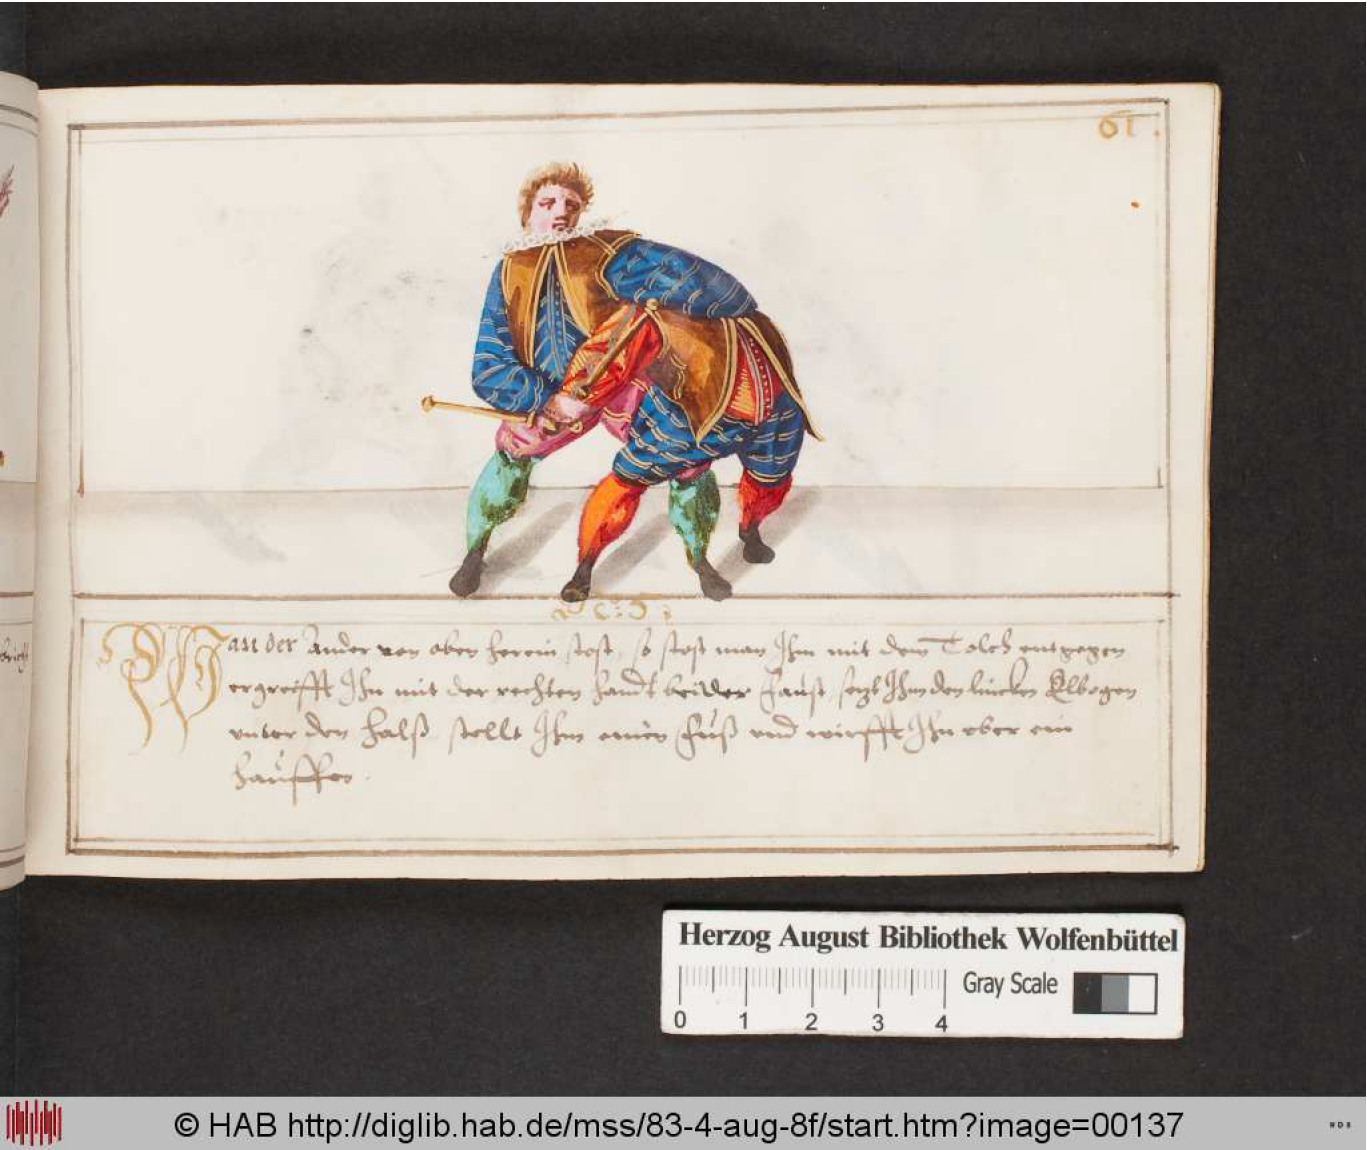 61.
Wan der Ander von oben herein stost, so stost man Ihm mit dem Tolch entgegen
ergreifft Ihn mit der rechten handt bei der Faust setzt Ihm den lincken Elbogen
unter den Halß stellt Ihm einen Fuß und wirfft Ihn ober ein
hauffen.
Herzog August Bibliothek Wolfenbüttel
Gray Scale
0 1 2 3 4
© HAB http://diglib.hab.de/mss/83-4-aug-8f/start.htm?image=00137